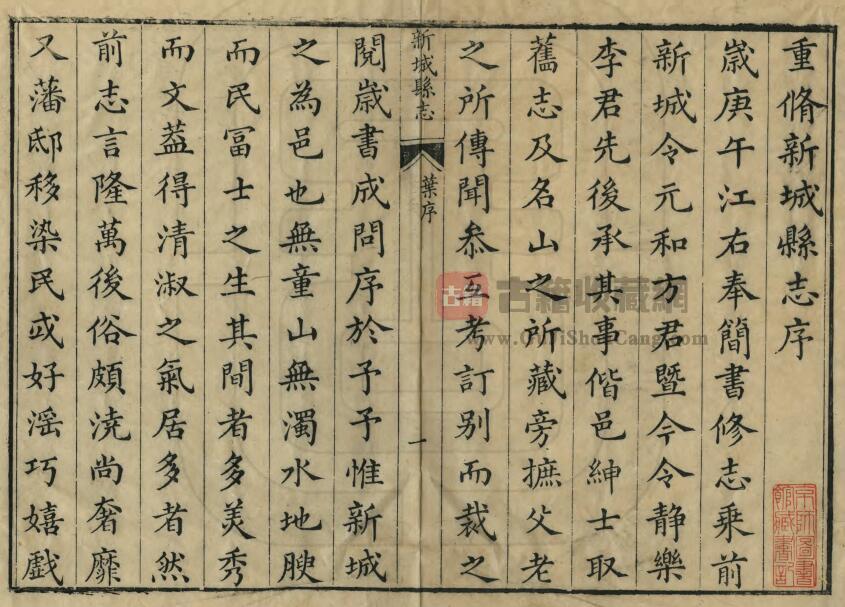 重脩新城縣志序
歲庚午江右奉簡書修志乘前
新城令元和方君暨今令静樂
李君先後承其事偕邑紳士取
舊志及名山之所藏旁摭父老
之所傳聞叅互考訂别而裁之
新城縣志
葉序
一
閱歲書成問序於予予惟新城
之為邑也無童山無濁水地腴
而民冨士之生其間者多美秀
而文葢得清淑之氣居多者然
前志言隆萬後俗頗澆尚奢靡
又藩邸移染民或好滛巧嬉戲
古籍
古籍收藏網
www.GuJiShouCang.com